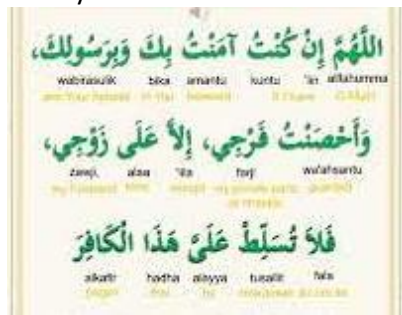 اللَّهُمَّ إِنْ كُنْتُ آمَنْتُ بِكَ وَبِرَسُولِكَ،
wabirasulik bika amantu kuntu 'iin
in You believed
وَأَحْصَنْتُ فَرْجِي، إِلاَّ عَلَى زَوْجِي،
zawji, alaa 'iila farji wa'ahsantu
my husband except my private parts guarded
فَلاَ تُسَلِّطْ عَلَيَّ هَذَا الْكَافِرَ
alkafir hadha alayya tusallit fala